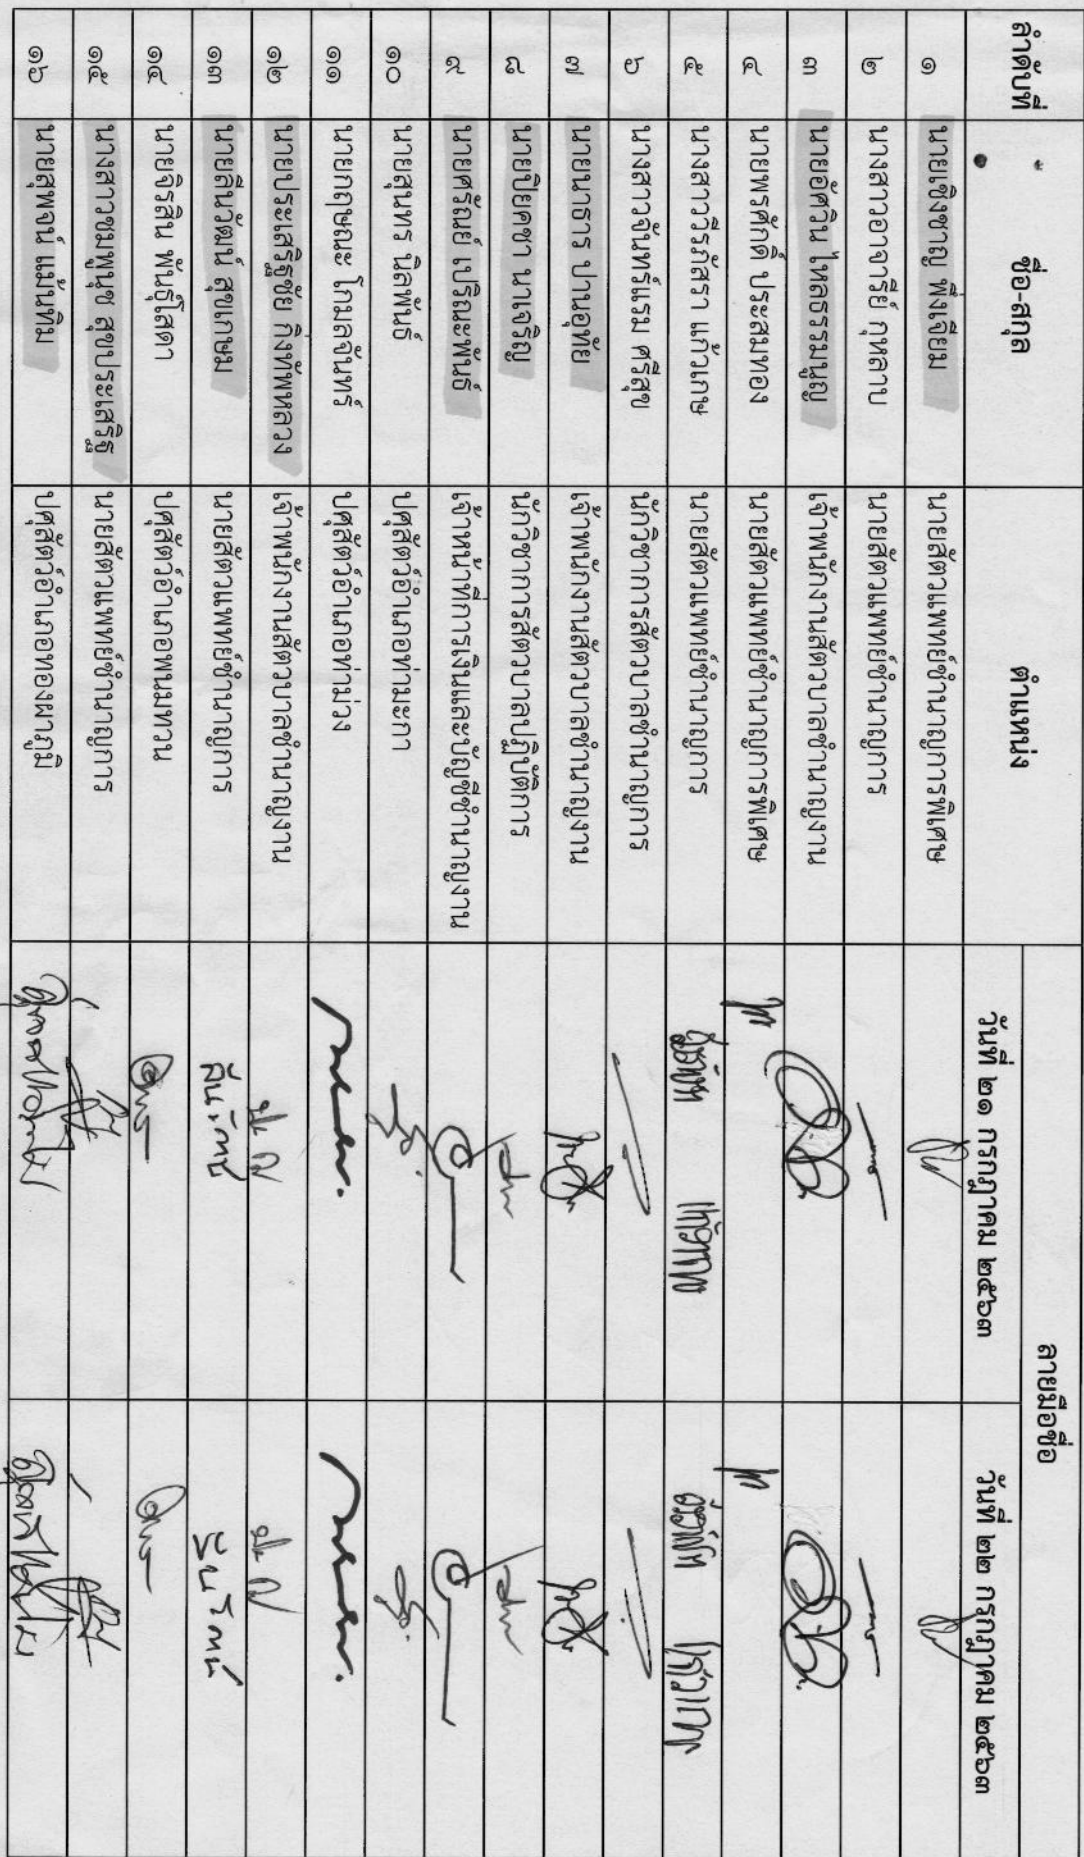 ลำดับที่ ชื่อ-สกุล ตำแหน่ง ลายมือชื่อ
วันที่ ๒๑ กรกฎาคม ๒๕๖๓ วันที่ ๒๒ กรกฎาคม ๒๕๖๓
๑ นายเชิงชาญ พึ่งเจียม นายสัตวแพทย์ชำนาญการพิเศษ
๒ นางสาวอาจารีย์ กุหลาบ นายสัตวแพทย์ชำนาญการ
๓ นายอัศวิน ไหลธรรมนูญ เจ้าพนักงานสัตวบาลชำนาญงาน
๔ นายพรศักดิ์ ประสมทอง นายสัตวแพทย์ชำนาญการพิเศษ
๕ นางสาววีรภัสรา แก้วเกษ นายสัตวแพทย์ชำนาญการ
๖ นางสาวจันทร์แรม ศรีสุข นักวิชาการสัตวบาลชำนาญการ
๗ นายนาธาร ปานอุทัย เจ้าพนักงานสัตวบาลชำนาญงาน
๘ นายปิยะคชา นาเจริญ นักวิชาการสัตวบาลปฏิบัติการ
๙ นายศรัณย์ เปริณะพันธ์ เจ้าหน้าที่การเงินและบัญชีชำนาญงาน
๑๐ นายสุนทร นิลพันธ์ ปศุสัตว์อำเภอท่ามะกา
๑๑ นายกฤษณะ โกมลจันทร์ ปศุสัตว์อำเภอท่าม่วง
๑๒ นายประเสริฐชัย กิ่งทัพหลวง เจ้าพนักงานสัตวบาลชำนาญงาน
๑๓ นายสินวัฒน์ สุขเกษม นายสัตวแพทย์ชำนาญการ
๑๔ นายจิรสิน พันธุ์โสดา ปศุสัตว์อำเภอพนมทวน
๑๕ นางสาวชมพูนุช สุขประเสริฐ นายสัตวแพทย์ชำนาญการ
๑๖ นายสุพจน์ แม้นทิม ปศุสัตว์อำเภอทองผาภูมิ